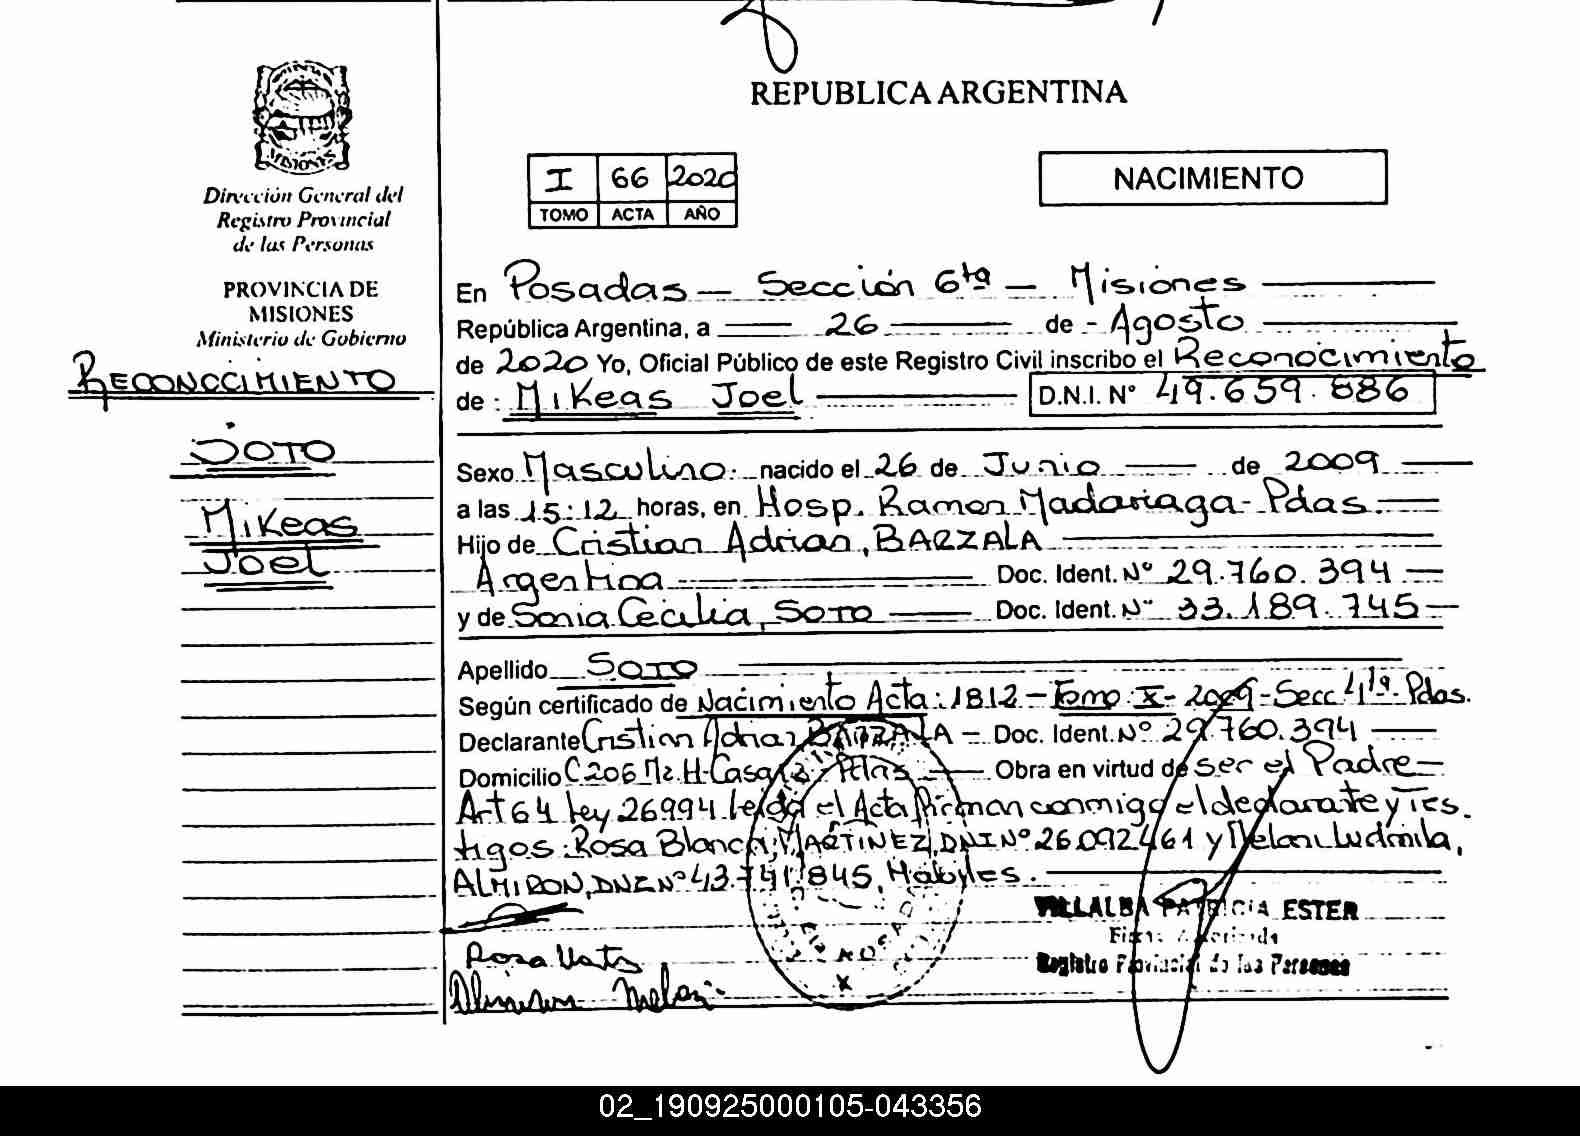 MISIONES
Dirección General del
Registro Provincial
de las Personas
PROVINCIA DE
MISIONES
Ministerio de Gobierno
RECONOCIMIENTO
SOTO
Mikeas
Joel
REPUBLICA ARGENTINA
I 66 2020
TOMO ACTA AÑO
NACIMIENTO
En Posadas — Sección 6ta — Misiones
República Argentina, a 26 de - Agosto
de 2020 Yo, Oficial Público de este Registro Civil inscribo el Reconocimiento
de : Mikeas Joel D.N.I. N° 49.659.886
Sexo Masculino. nacido el 26 de Junio de 2009
a las 15:12 horas, en Hosp. Ramon Madariaga - Pdas.
Hijo de Cristian Adrian, BARZALA
Argentina Doc. Ident. N° 29.760.394
y de Sonia Cecilia, SOTO Doc. Ident. N° 33.189.745
Apellido SOTO
Según certificado de Nacimiento Acta: 1812 - Tomo: X - 2009 - Secc. 4ta. Pdas.
Declarante Cristian Adrian BARZALA — Doc. Ident. N° 29.760.394
Domicilio C 206 Mz. H - Casa Pdas Obra en virtud de ser el Padre
Art 64 Ley 26994. Leida el Acta firman conmigo el declarante y Tes.
tigos: Rosa Blanca, MARTINEZ, DNI N° 26.092.461 y Melani Ludmila,
ALMIRON, DNI N° 43.741.845, Habiles.
VILLALBA PATRICIA ESTER
Firma Autorizada
Registro Provincial de las Personas
Rosa
Almiron Melani
02_190925000105-043356